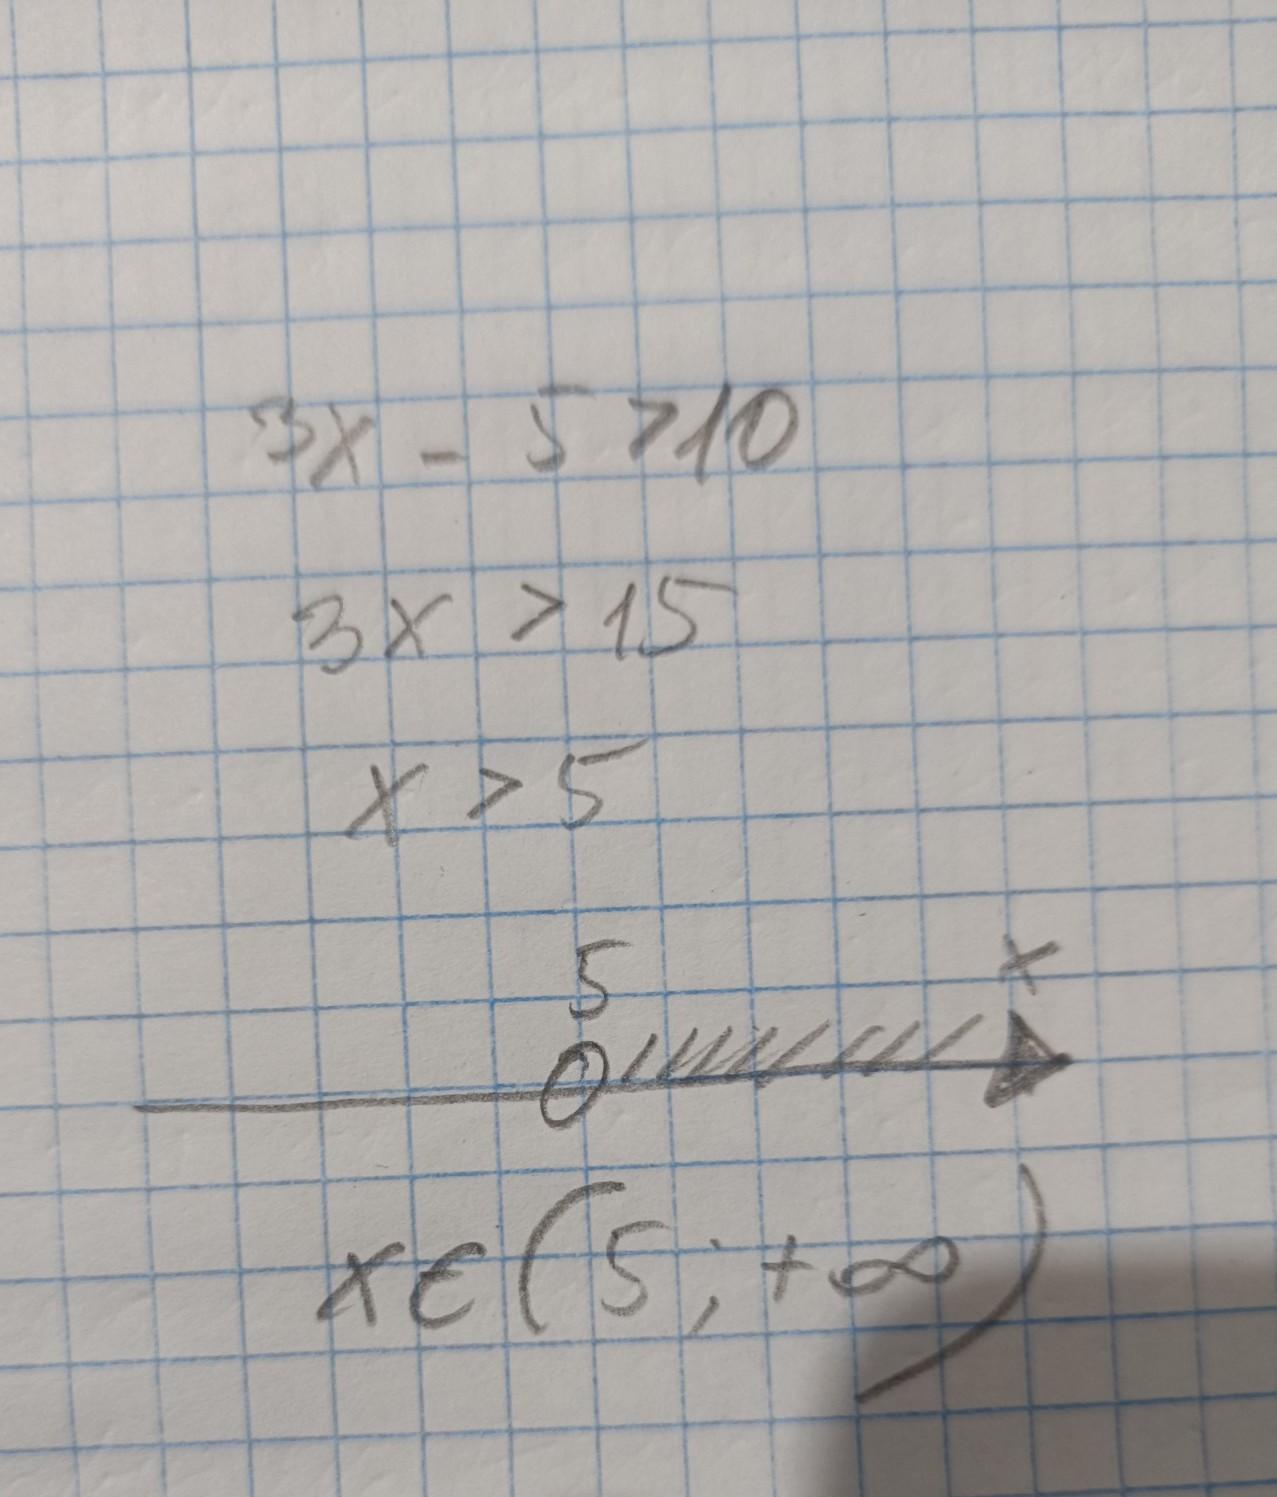 3x - 5 > 10
3x > 15
x > 5
5 x
x ∈ (5 ; +∞)